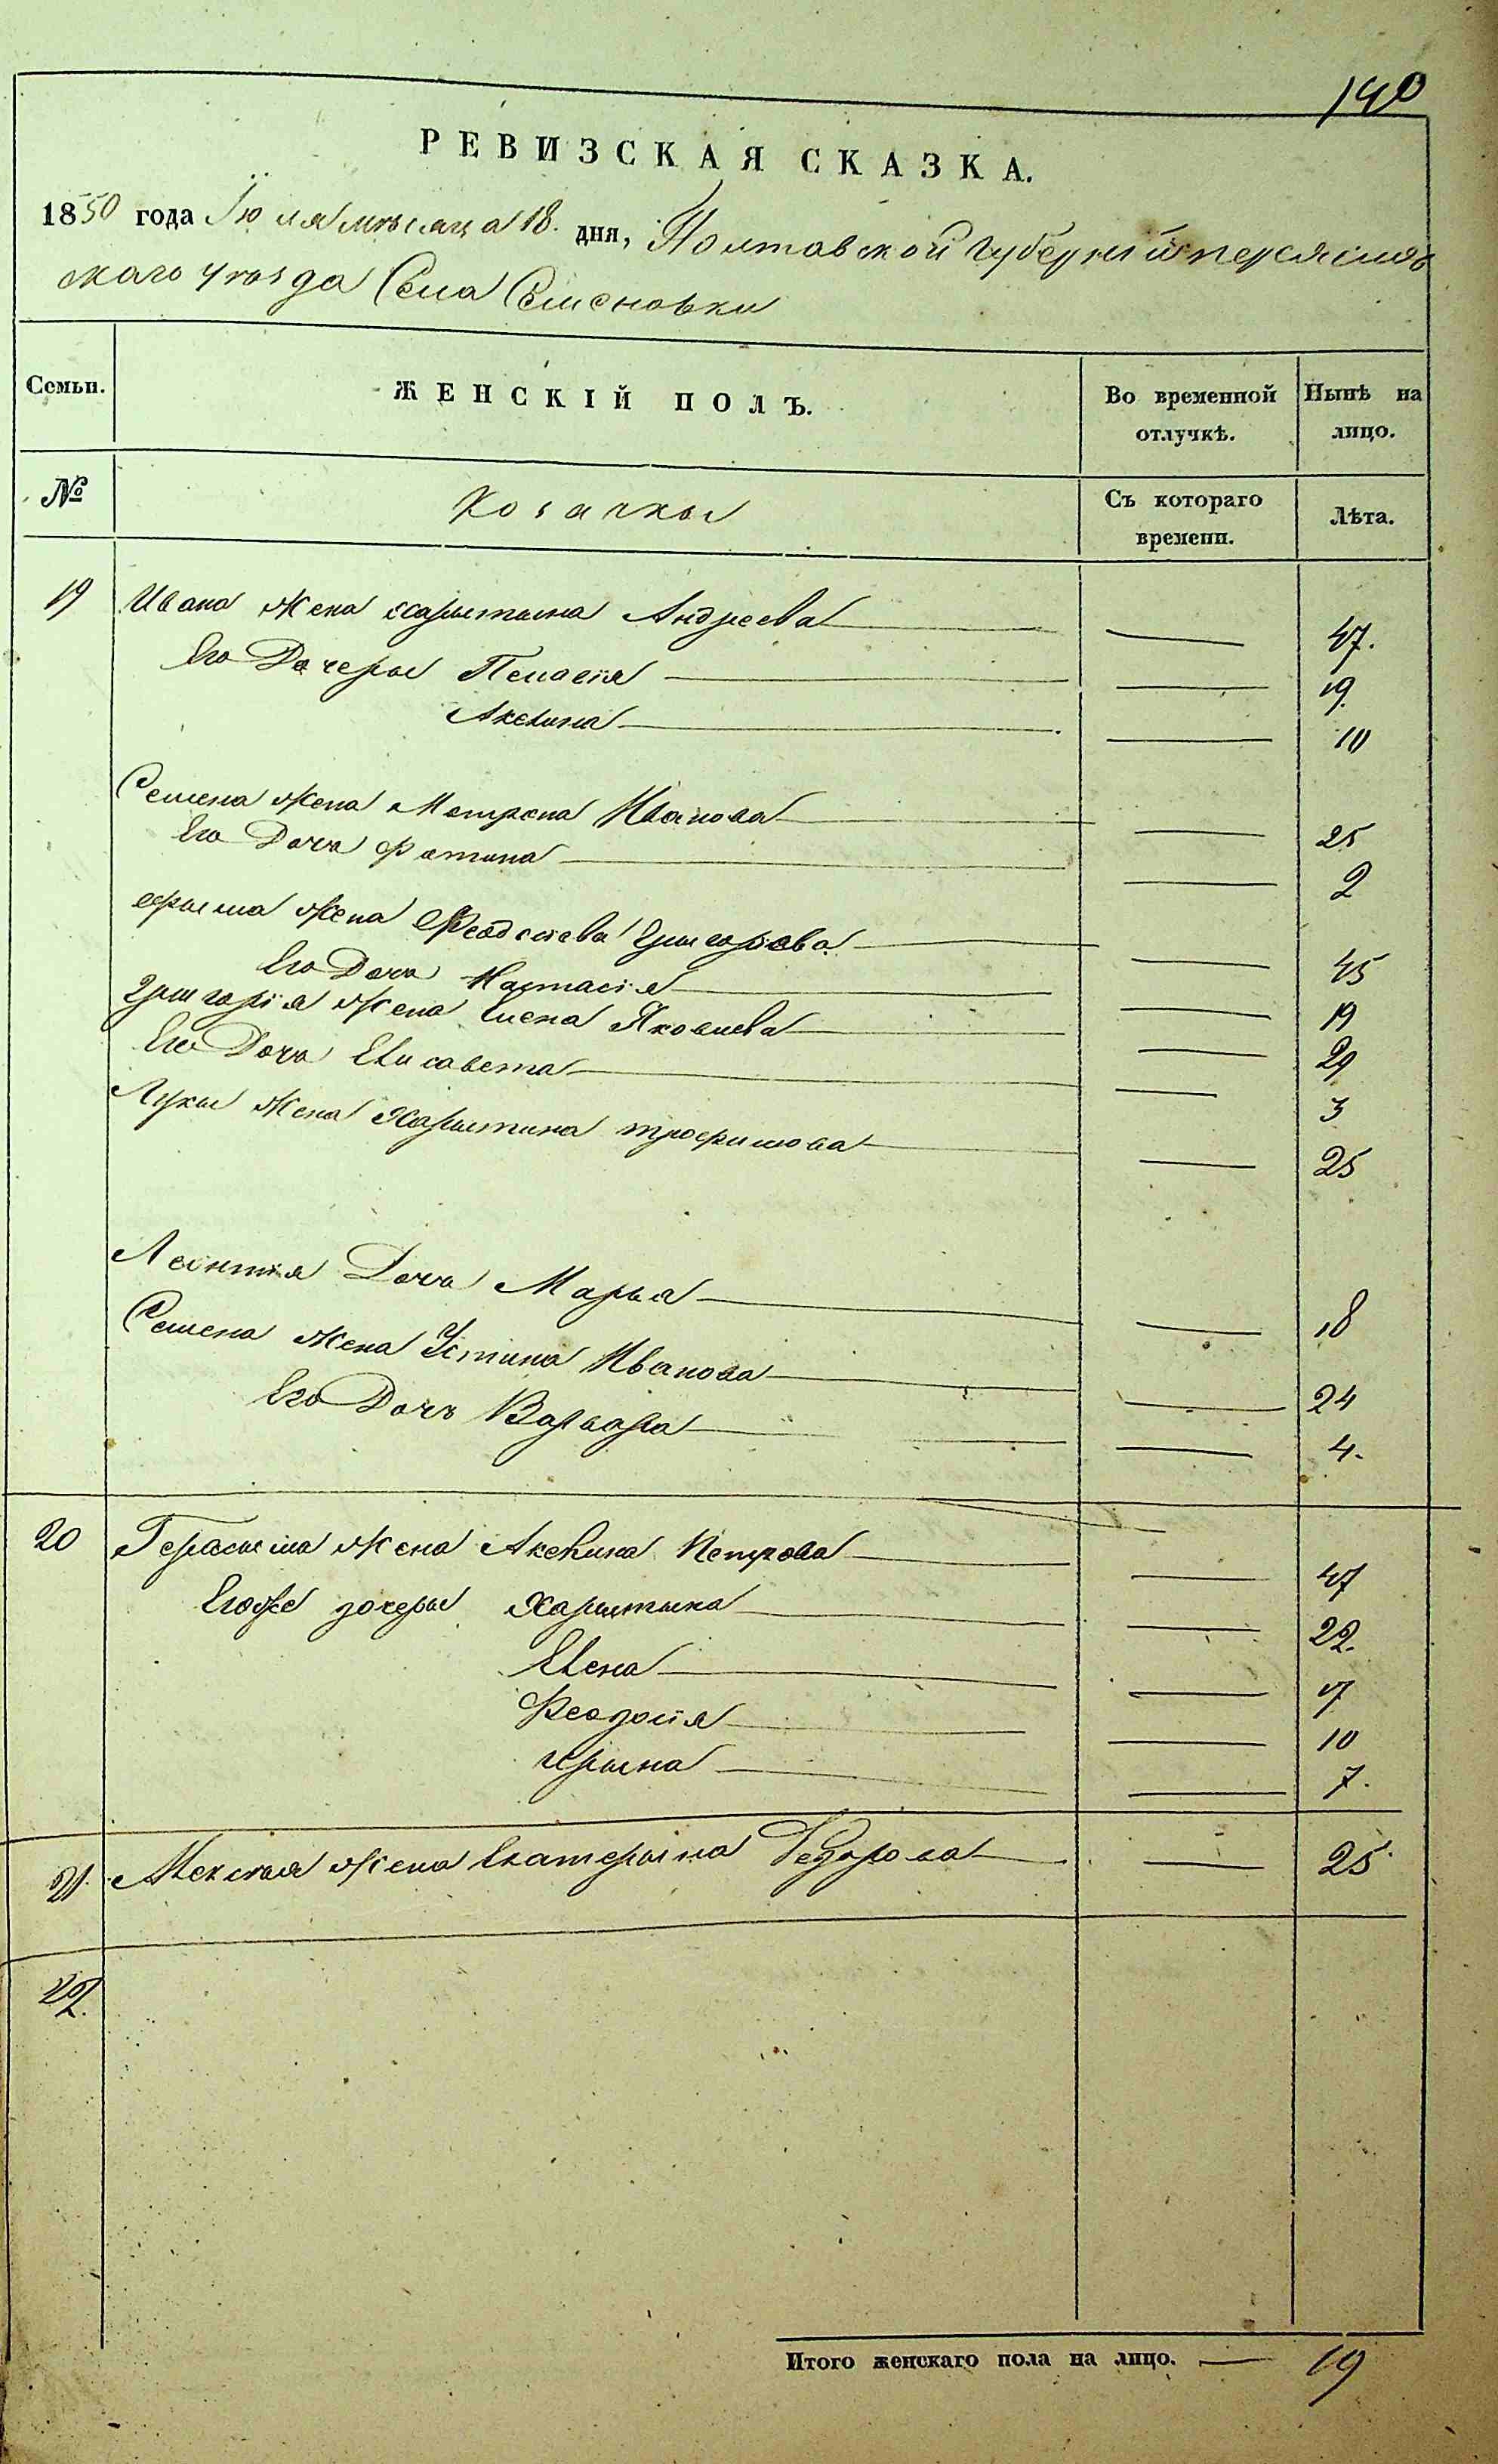 140
РЕВИЗСКАЯ СКАЗКА.
1850 года Іюля мѣсяца 18. дня, Полтавской губерніи переяслов
скаго уѣзда Села Семеновки
Семьи. ЖЕНСКІЙ ПОЛЪ. Во временной отлучкѣ. Нынѣ на лицо.
№ Козачкы Съ котораго времени. Лѣта.
19 Ивана Жена харытына Андреева — 47.
Его Дочеры Пелагія — 19.
Акелина — 10
Семена Жена Мотрона Иванова — 25
Его Дочь Фотина — 2
Жена Григорьева — 45
Его Дочь Настасія — 19
Григорія Жена Елена Яковлева — 29
Его Дочь Елисавета — 3
Лукы Жена Харытина трофимова — 25
Леонтія Дочь Марья — 18
Семена Жена Устина Иванова — 24
Его Дочь Варвара — 4.
20 Герасыма Жена Акелина Петрова — 47
Егоже дочеры Харытына — 22.
Елена — 17
Феодосія — 10
Ирына — 7.
21. Алексія Жена Екатерына Федорова — 25
22.
Итого женскаго пола на лицо. — 19